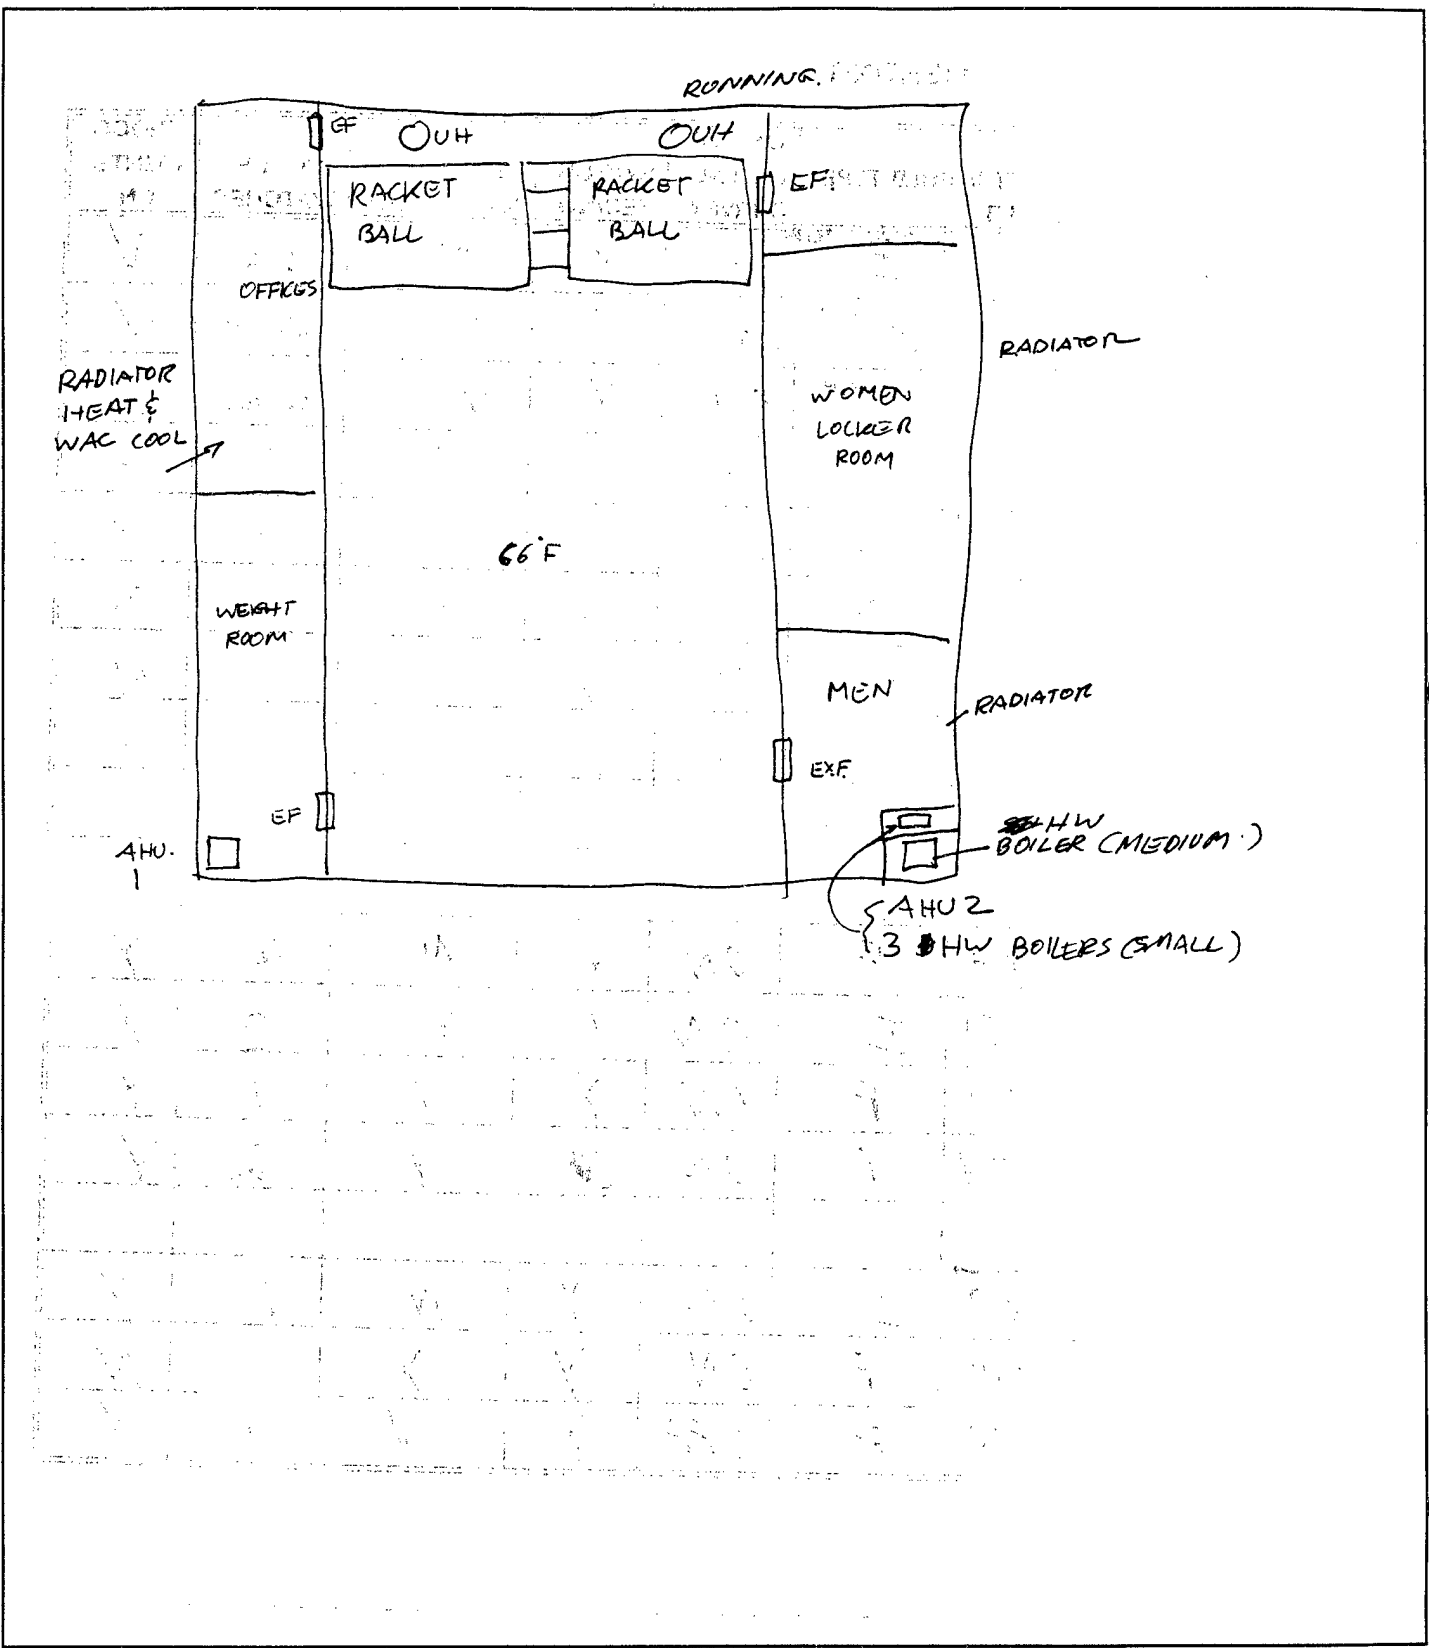 RUNNING.
EF
UH
UH
RACKET
BALL
RACKET
BALL
EF
OFFICES
RADIATOR
HEAT &
WAC COOL
RADIATOR
WOMEN
LOCKER
ROOM
66°F
WEIGHT
ROOM
MEN
RADIATOR
EXF.
EF
AHU.
1
HW
BOILER (MEDIUM.)
AHU 2
3 HW BOILERS (SMALL)